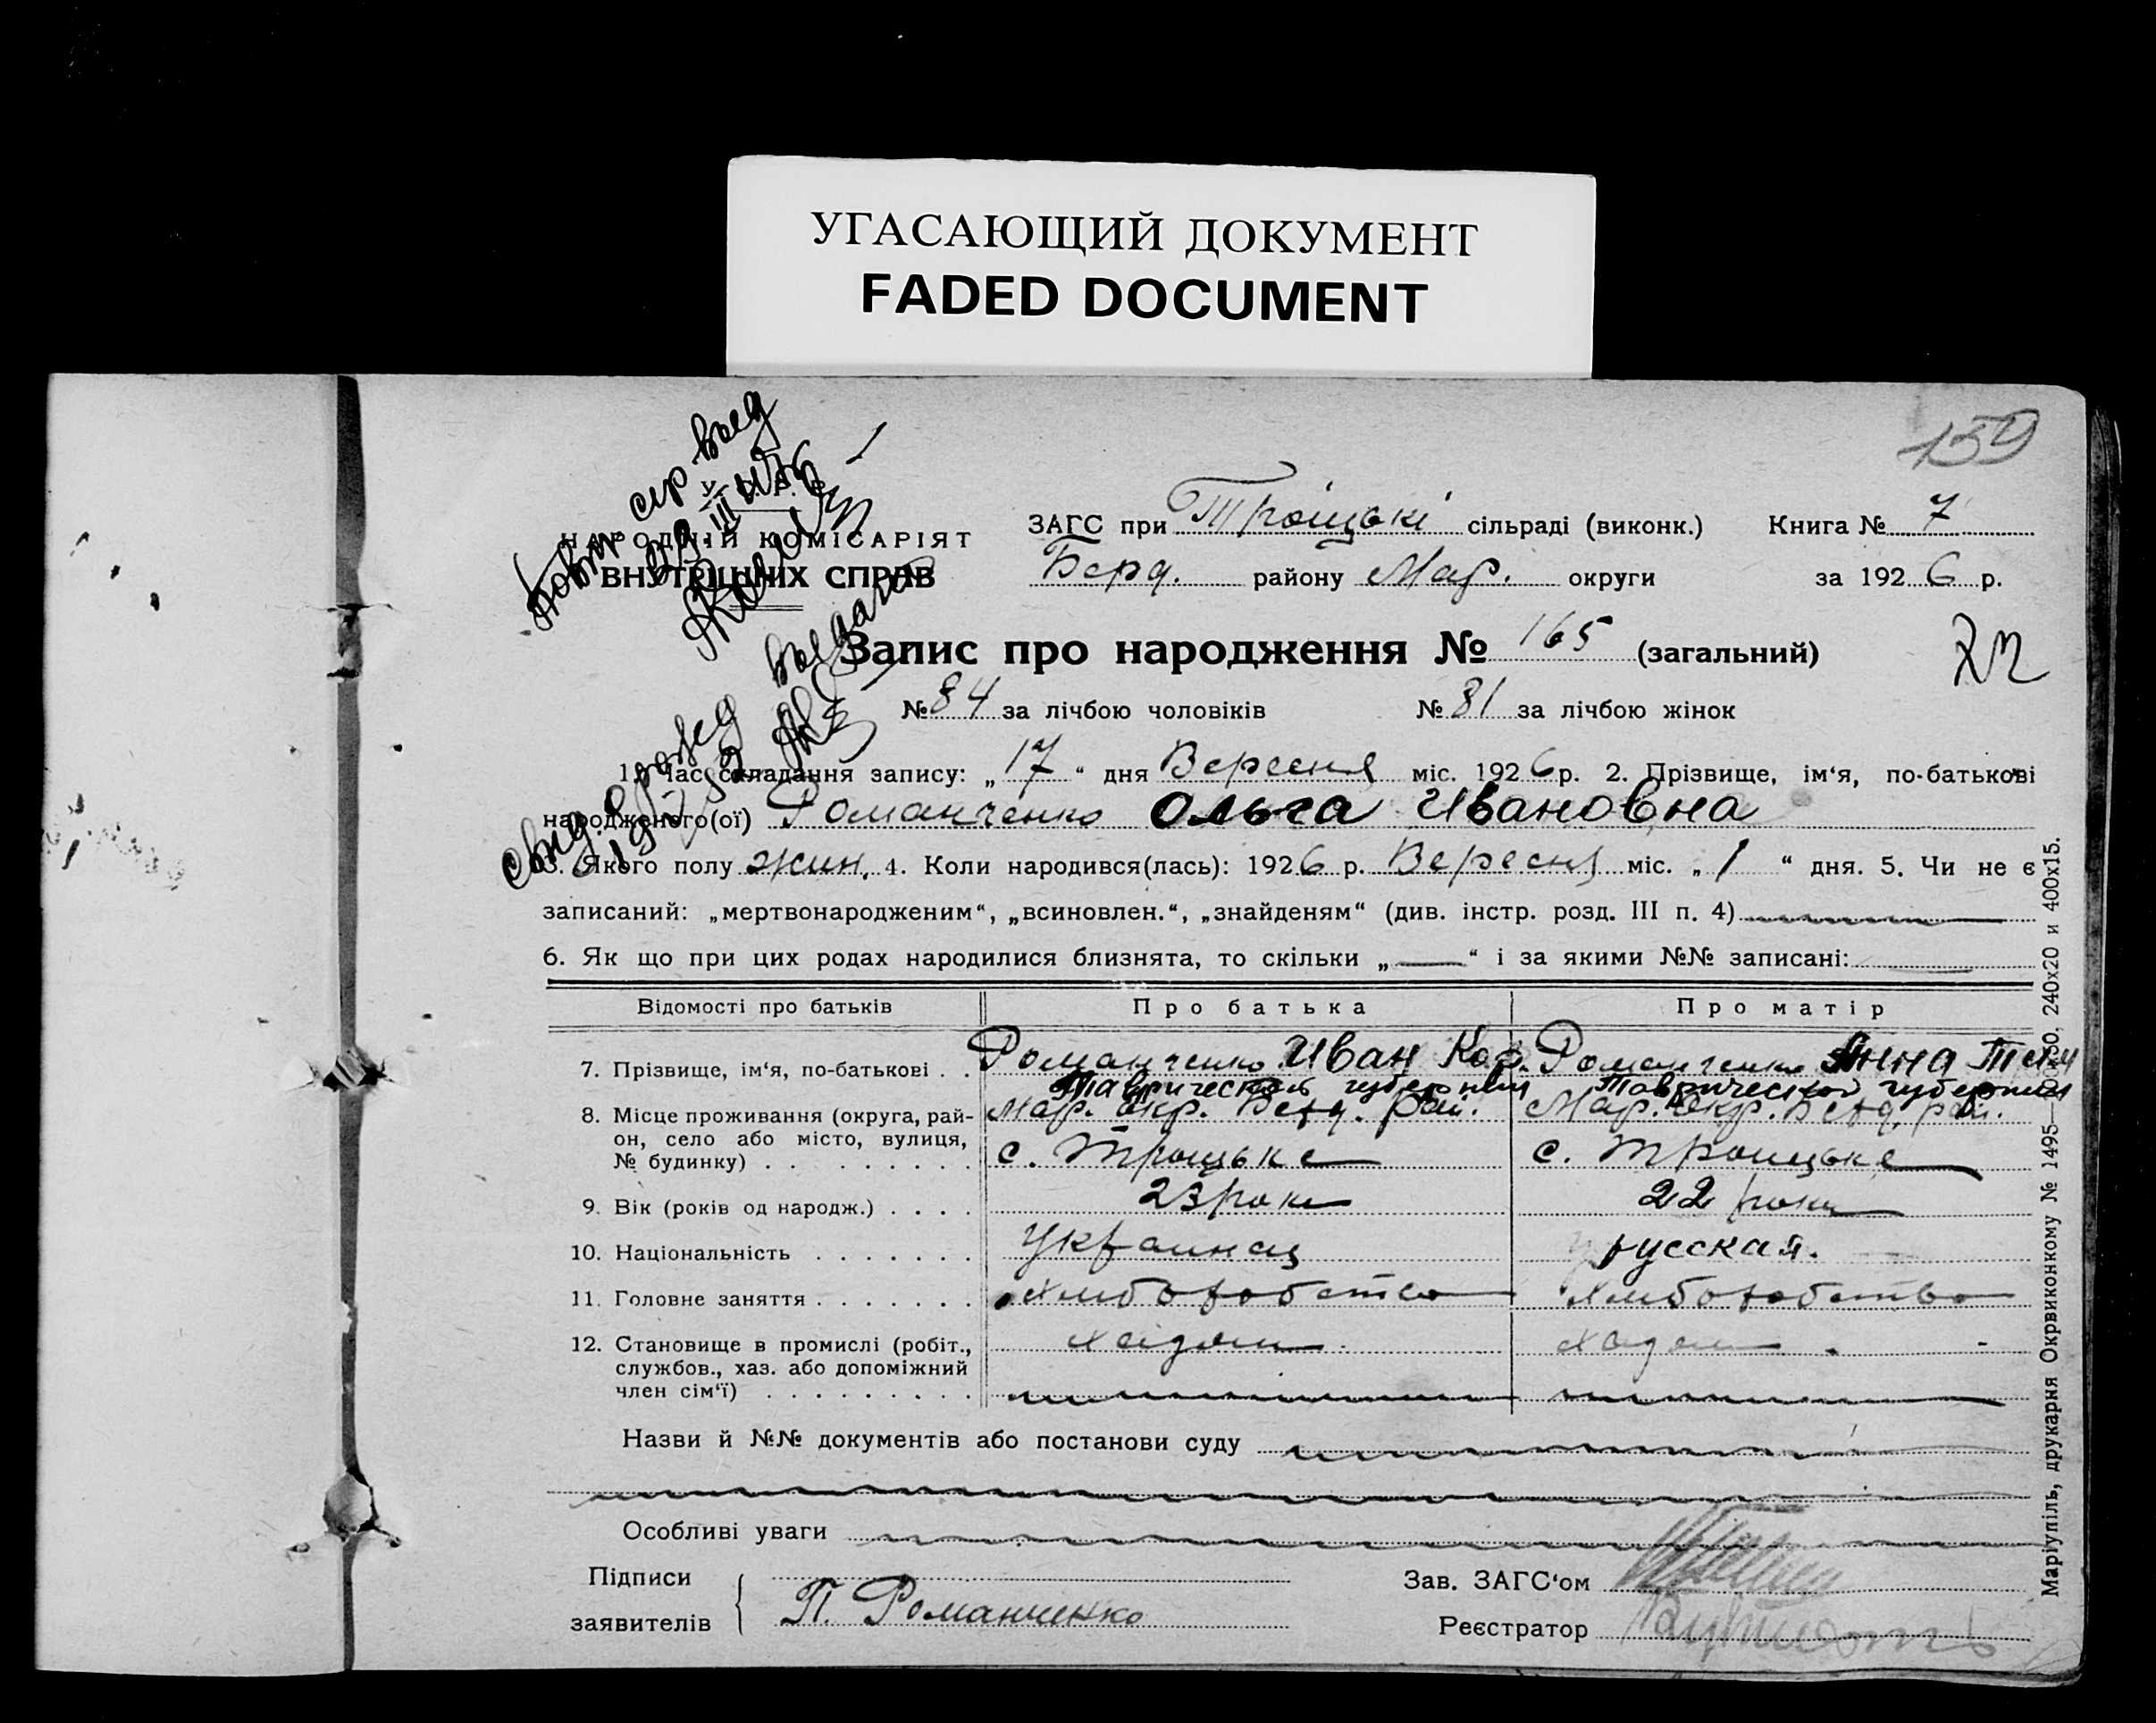 УГАСАЮЩИЙ ДОКУМЕНТ
FADED DOCUMENT
159
НАРОДНІЙ КОМІСАРІЯТ
ВНУТРІШНІХ СПРАВ
ЗАГС при Троіцькі сільраді (виконк.) Книга № 7
Берд. району Мар. округи за 1926 р.
Запис про народження № 165 (загальний)
№ 84 за лічбою чоловіків № 81 за лічбою жінок
1. Час складання запису: „17“ дня Вересня міс. 1926 р. 2. Прізвище, ім‘я, по-батькові
народженого(ої) Романченко Ольга Ивановна
3. Якого полу жин. 4. Коли народився(лась): 1926 р. Вересня міс. „1“ дня. 5. Чи не є
записаний: „мертвонародженим“, „всиновлен.“, „знайденям“ (див. інстр. розд. III п. 4)
6. Як що при цих родах народилися близнята, то скільки „—“ і за якими №№ записані: —
Відомості про батьків Про батька Про матір
7. Прізвище, ім‘я, по-батькові . . Романченко Иван Романченко Анна
Таврической губернии Таврической губернии
8. Місце проживання (округа, рай- Мар. окр. Берд. рай. Мар. Окр. Берд. рай.
он, село або місто, вулиця, с. Троицьке с. Троицьке
№ будинку) . . . . . . . . .
9. Вік (років од народж.) . . . . 23 роки 22 роки
10. Національність . . . . . . . Украинец русская.
11. Головне заняття . . . . . . . Хлиборобство Хлиборобство
12. Становище в промислі (робіт.,
службов., хаз. або допоміжний
член сім‘ї) . . . . . . . . .
Назви й №№ документів або постанови суду
Особливі уваги
Підписи Зав. ЗАГС‘ом
заявителів П. Романченко Реєстратор
Маріупіль, друкарня Окрвиконкому № 1495
240x20 и 400x15.